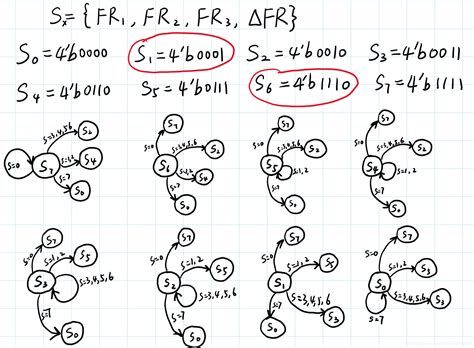 Sx = { FR1, FR2, FR3, ΔFR }
S0 = 4'b0000 S1 = 4'b0001 S2 = 4'b0010 S3 = 4'b0011
S4 = 4'b0110 S5 = 4'b0111 S6 = 4'b1110 S7 = 4'b1111
S=0 S7 S=3,4,5,6 S2 S=1,2 S4 S=7 S0
S=0 S7 S6 S=3,4,5,6 S2 S4 S=7 S0
S=0 S7 S5 S=3,4,5,6 S2 S=1,2 S=7 S0
S=0 S7 S4 S=3,4,5,6 S2 S=7 S0
S=0 S7 S3 S=1,2 S5 S=3,4,5,6 S=7 S0
S=0 S7 S2 S=1,2 S5 S=3,4,5,6 S=7 S0
S=0 S7 S1 S=1,2 S5 S=3,4,5,6 S3 S=7 S0
S=0 S7 S0 S=1,2 S3 S=3,4,5,6 S3 S=7